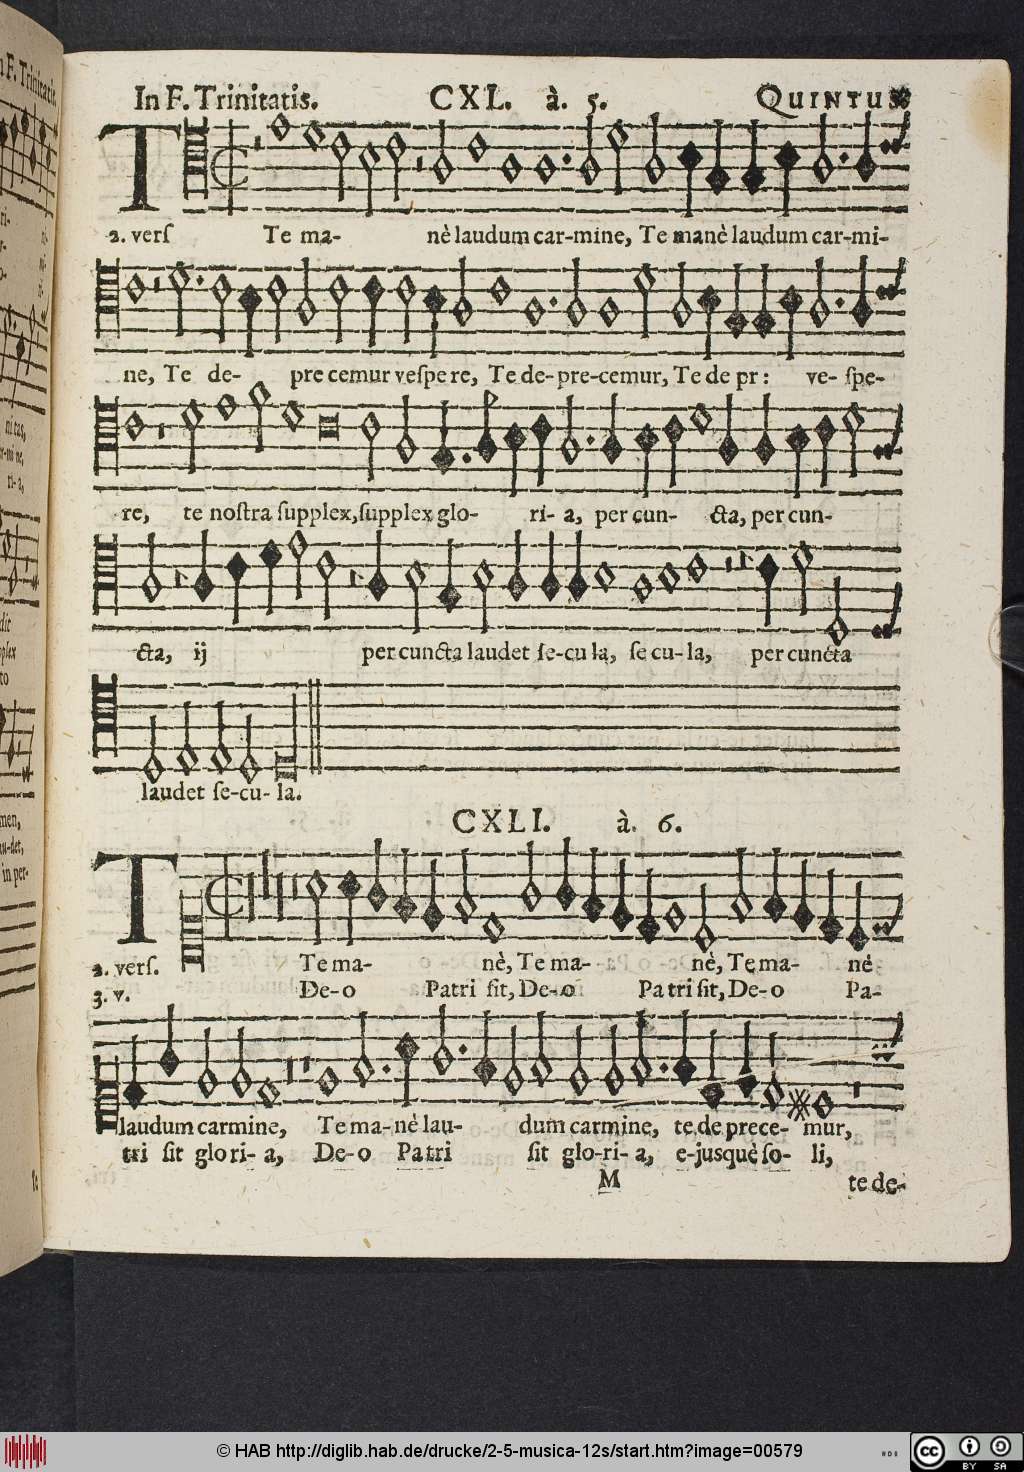 In F. Trinitatis. CXL. à. 5. QUINTUS
T
2. verſ Te ma- nè laudum car-mine, Te manè laudum car-mi-
ne, Te de- pre cemur veſpe re, Te de-pre-cemur, Te de pr: ve- ſpe-
re, te noſtra ſupplex, ſupplex glo- ri- a, per cun- cta, per cun-
cta, ij per cuncta laudet ſe-cu la, ſe cu-la, per cuncta
laudet ſe-cu- la.
CXLI. à. 6.
T
2. verſ. Te ma- nè, Te ma- nè, Te ma- nè
3. v. De-o Patri ſit, De-o Pa tri ſit, De-o Pa-
laudum carmine, Te ma-nè lau- dum carmine, te de prece- mur,
tri ſit glo ri- a, De-o Patri ſit glo-ri- a, e-jusquè ſo- li,
M te de-
In F. Trinitatis.
© HAB http://diglib.hab.de/drucke/2-5-musica-12s/start.htm?image=00579
HAB
cc BY SA